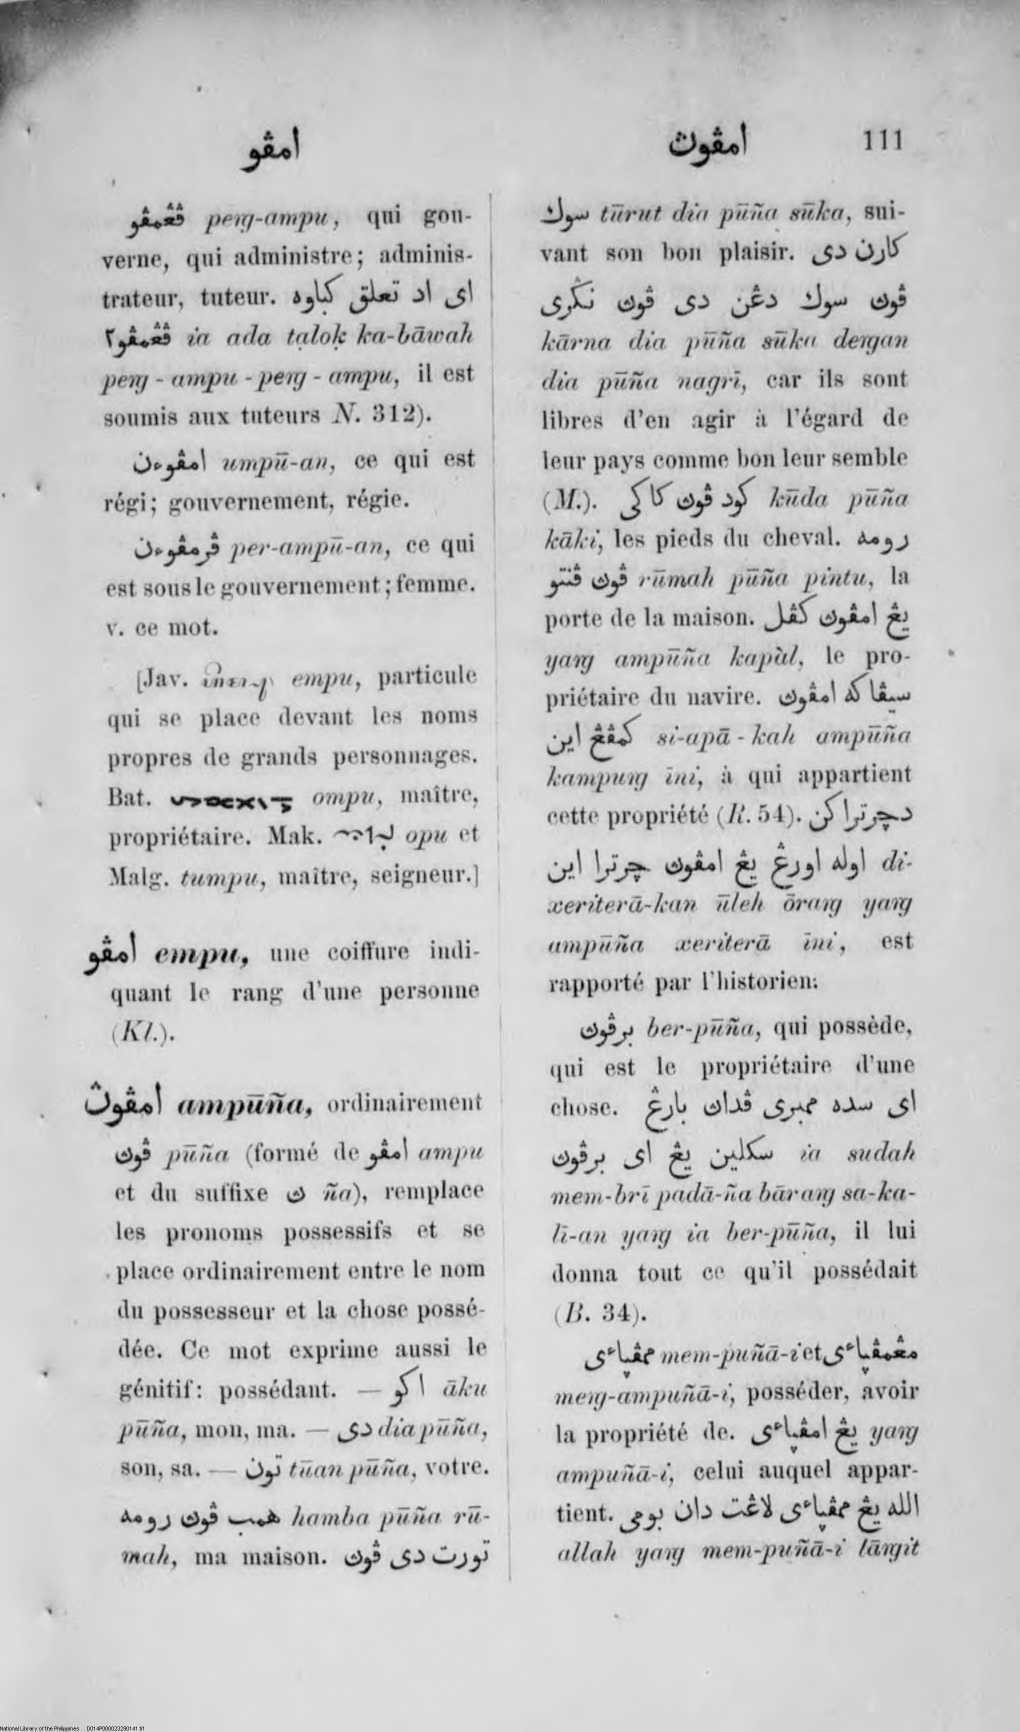 امڤو
امڤوڽ 111
ڤڠمڤو perŋ-ampu, qui gou-
verne, qui administre; adminis-
trateur, tuteur. اى اد تعلق كباوه
ڤڠمڤو٢ ia ada taloḳ ka-bāwah
perŋ-ampu-perŋ-ampu, il est
soumis aux tuteurs N. 312).
امڤوءن umpū-an, ce qui est
régi; gouvernement, régie.
ڤرمڤوءن per-ampū-an, ce qui
est sous le gouvernement; femme.
v. ce mot.
[Jav. empu, particule
qui se place devant les noms
propres de grands personnages.
Bat. ompu, maître,
propriétaire. Mak. opu et
Malg. tumpu, maître, seigneur.]
امڤو empu, une coiffure indi-
quant le rang d'une personne
(Kl.).
امڤوڽ ampūña, ordinairement
ڤوڽ pūña (formé de امڤو ampu
et du suffixe ڽ ña), remplace
les pronoms possessifs et se
place ordinairement entre le nom
du possesseur et la chose possé-
dée. Ce mot exprime aussi le
génitif: possédant. — اكو āku
pūña, mon, ma. — دى dia pūña,
son, sa. — تون tūan pūña, votre.
همب ڤوڽ رومه hamba pūña rū-
mah, ma maison. تورت دى ڤوڽ
سوك tūrut dia pūña sūka, sui-
vant son bon plaisir. كارن دى
ڤوڽ سوك دڠن دى ڤوڽ نݢرى
kārna dia pūña sūka derŋan
dia pūña nagrī, car ils sont
libres d'en agir à l'égard de
leur pays comme bon leur semble
(M.). كود ڤوڽ كاكى kūda pūña
kāki, les pieds du cheval. رومه
ڤوڽ ڤنتو rūmah pūña pintu, la
porte de la maison. يڠ امڤوڽ كڤل
yaŋ ampūña kapàl, le pro-
priétaire du navire. سيڤاكه امڤوڽ
كمڤڠ اين si-apā-kah ampūña
kampuŋ īni, à qui appartient
cette propriété (R. 54). دچرتراكن
اوله اورڠ يڠ امڤوڽ چرترا اين di-
xeriterā-kan ūleh ōraŋ yaŋ
ampūña xeriterā īni, est
rapporté par l'historien.
برڤوڽ ber-pūña, qui possède,
qui est le propriétaire d'une
chose. اى سده ممبرى ڤداڽ بارڠ
سكلين يڠ اى برڤوڽ ia sudah
mem-brī padā-ña bāraŋ sa-ka-
lī-an yaŋ ia ber-pūña, il lui
donna tout ce qu'il possédait
(B. 34).
ممڤڽاءى mem-puñā-i et مڠمڤڽاءى
meŋ-ampuñā-i, posséder, avoir
la propriété de. يڠ امڤڽاءى yaŋ
ampuñā-i, celui auquel appar-
tient. الله يڠ ممڤڽاءى لاڠت دان بومى
allah yaŋ mem-puñā-i lāŋit
National Library of the Philippines